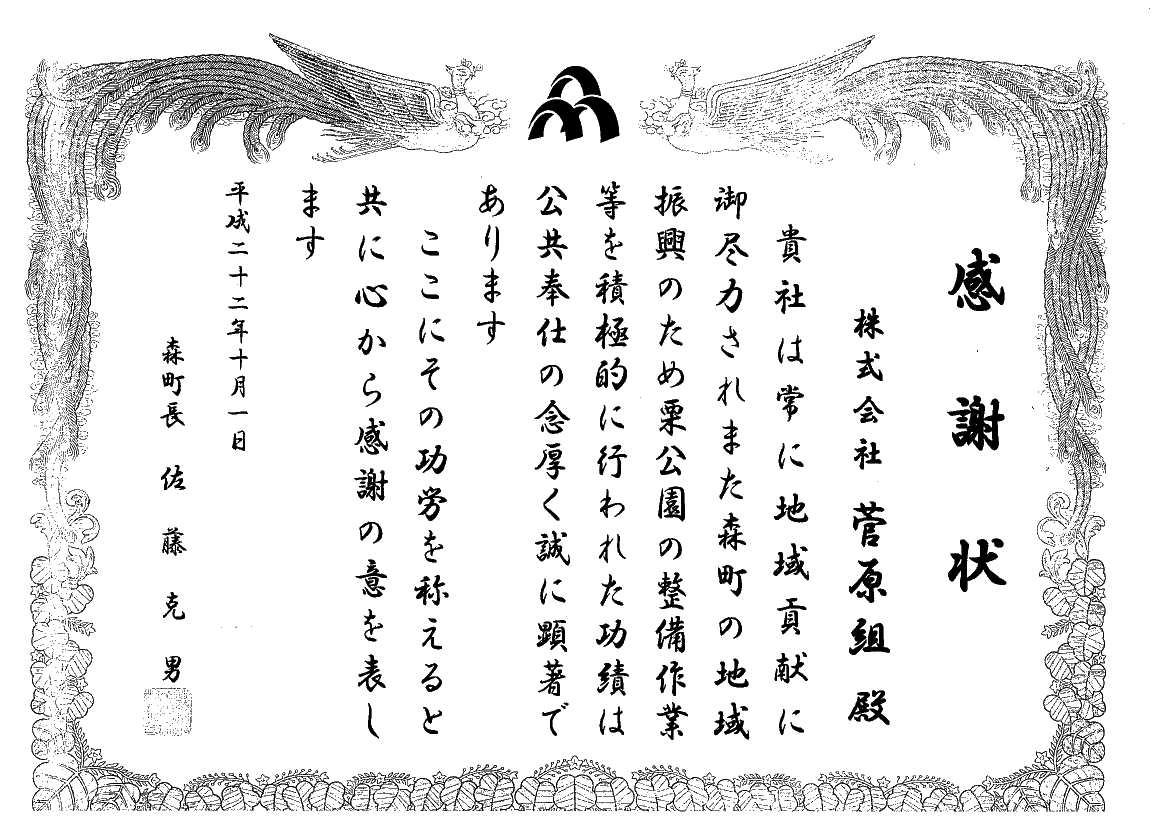 感謝状
株式会社 菅原組 殿
貴社は常に地域貢献に
御尽力されまた森町の地域
振興のため栗公園の整備作業
等を積極的に行われた功績は
公共奉仕の念厚く誠に顕著で
あります
ここにその功労を称えると
共に心から感謝の意を表し
ます
平成二十二年十月一日
森町長 佐藤克男